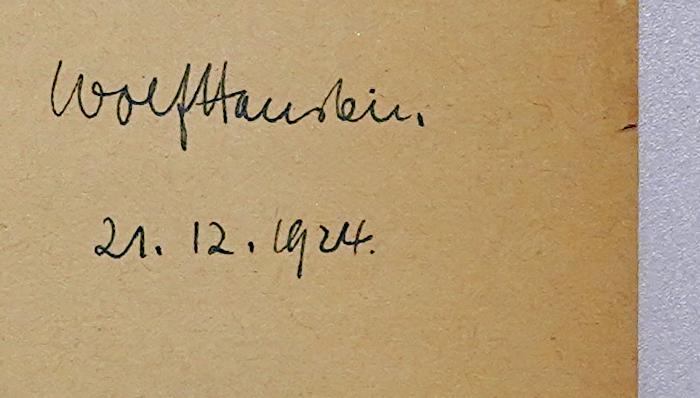 Wolf Haustein.
21. 12. 1924.